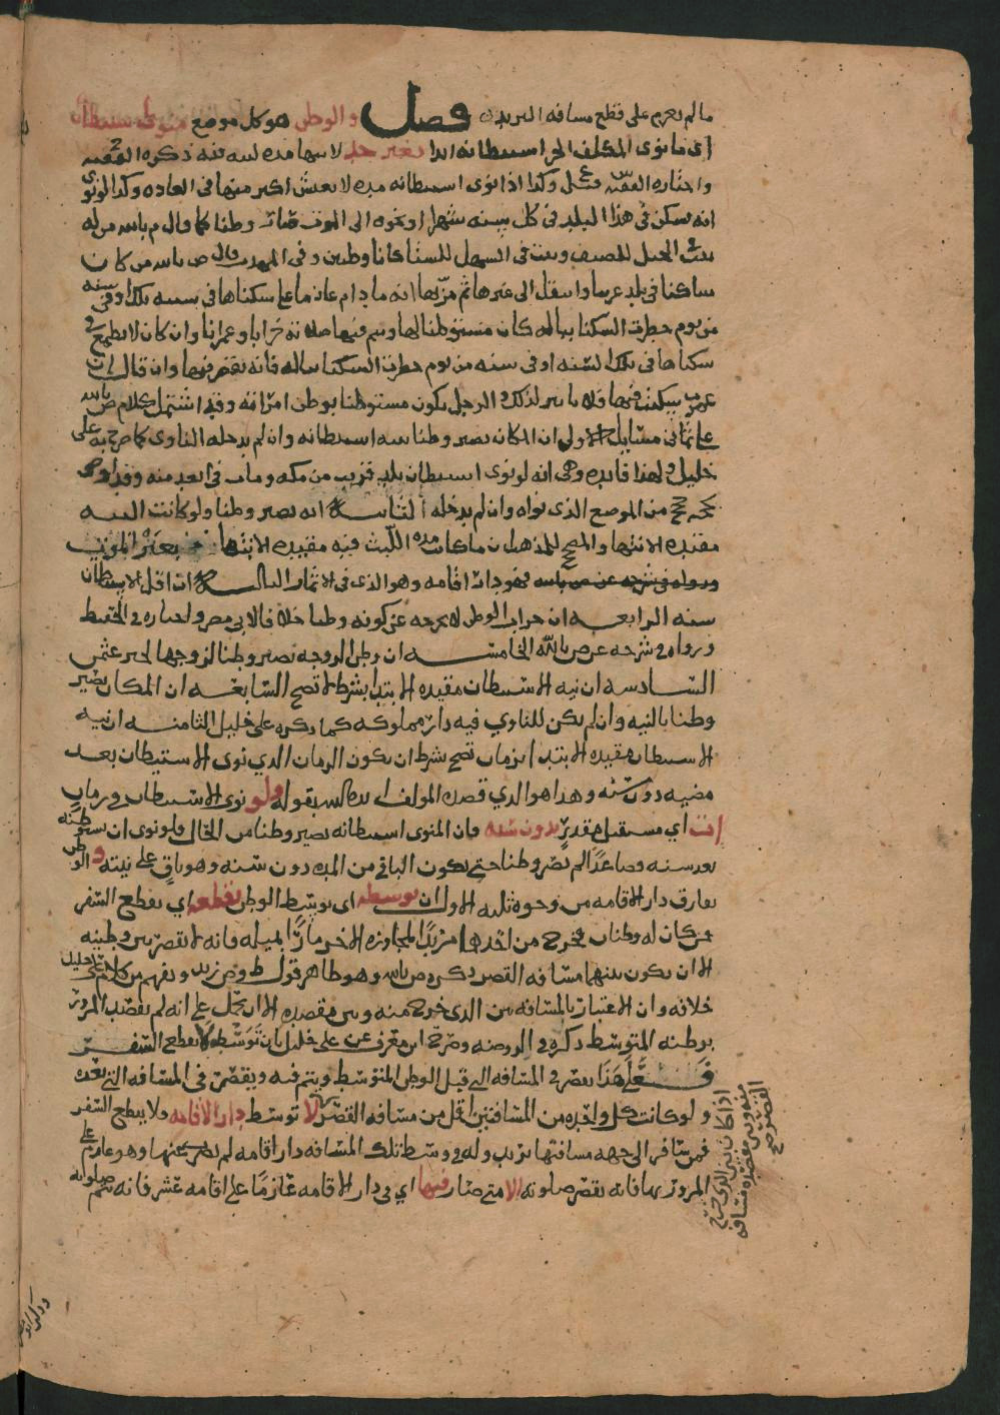 ما لم يعزم على قطع مسافه البريد فصل والوطن هو كل موضع منوي استيطان
اي ما نوى المكلف الحر استيطانه ابدا بغير حد لا سيما مده لبيه ذكره الفقيه
واختاره الفقيه وكذا اذا نوى استيطانه مده لا يعيش اكثر منها في العاده وكذا لو نوى
انه يسكن في هذا البلد في كل سنه شهرا او نحوه الى الموت صارت وطنا كما قال م بالله من له
بيت في الجبل للصيف وبيت في السهل للشتا كانا وطنين وفي المهذب قال ص بالله من كان
ساكنا في بلد غريبا وانتقل الى غيرها ثم مر بها انه ما دام عازما على سكناها في سنته تلك او في سنه
من يوم خطرت السكنا بباله كان مستوطنا لها ويتم فيها صلاته خرابا وعمرانا وان كان لا يطمع في
سكناها في تلك السنه او في سنه من يوم خطرت السكنا بباله فانه يقصر فيها وان قال ان
عمرت سكنت فيها فلا تاثير لذلك والرجل يكون مستوطنا بوطن امراته وقد اشتمل كلام ص بالله
على ثماني مسايل الاولى ان المكان يصير وطنا بنيه استيطانه وان لم يدخله الناوي كما صرح به على
خليل ولهذا فايده وهي انه لو نوى استيطان بلد قريب من مكه ومات في ابعد منه وقد اوصى
بحجه حج من الموضع الذي نواه وان لم يدخله الثانيه انه يصير وطنا ولو كانت النيه
مقيده الانتها والصحيح للمذهب ان ما كانت مده اللبث فيه مقيده الانتها
فهو دار اقامه وهو الذي في الاثمار الثالثه ان اقل الاستيطان
سنه الرابعه ان خراب الوطن لا يخرجه عن كونه وطنا خلافا لابي مضر واختاره في الحفيظ
ورواه في شرحه عن ص بالله الخامسه ان وطن الزوجه يصير وطنا لزوجها لخبر عثمن
السادسه ان نيه الاستيطان مقيده الابتدا بشرط لا تصح السابعه ان المكان يصير
وطنا بالنيه وان لم يكن للناوي فيه دار مملوكه كما ذكره على خليل الثامنه ان نيه
الاستيطان مقيده الابتدا بزمان تصح بشرط ان يكون الزمان الذي نوى الاستيطان بعد
مضيه دون سنه وهذا هو الذي قصده المولف ايده الله بقوله ولو نوى الاستيطان في زمان
ات اي مستقبل مقدر بدون سنه فان المنوى استيطانه يصير وطنا من الحال فلو نوى ان يستوطنه
بعد سنه فصاعدا لم يصر وطنا حتى يكون الباقي من المده دون سنه وهو باق على نيته والوطن
يفارق دار الاقامه من وجوه ثلثه الاول ان توسطه اى توسط الوطن يقطعه اي يقطع السفر
فمن كان له وطنان فخرج من احدهما مريدا لمجاوزه الاخر مارا بميله فانه لا يقصر بين وطنيه
الا ان يكون بينهما مسافه القصر ذكره ص بالله وهو ظاهر قول ط وص زيد ويفهم من كلام على خليل
خلافه وان الاعتبار بالمسافه بين الذى خرج منه وبين مقصده الا ان يحمل على انه لم يقصد المرور
بوطنه المتوسط ذكره في الروضه وصرح ابن معرف عن على خليل بان توسطه لا يقطع السفر
فعلى هذا يقصر في المسافه التي قبل الوطن المتوسط ويتم فيه ويقصر في المسافه التي بعده
ولو كانت كل واحده من المسافتين اقل من مسافه القصر لا توسط دار الاقامه ولا يقطع السفر
فمن سافر الى جهه مسافتها بريد وله في وسط تلك المسافه دار اقامه لم يضرب عنها وهو عازم على
المرور بها فانه يقصر صلوته الا متى صار فيها اي في دار الاقامه عازما على اقامه عشر فانه يتم صلواته
اذا كان بين الذي خرج
منه وبين مقصده مسافه
القصر صح